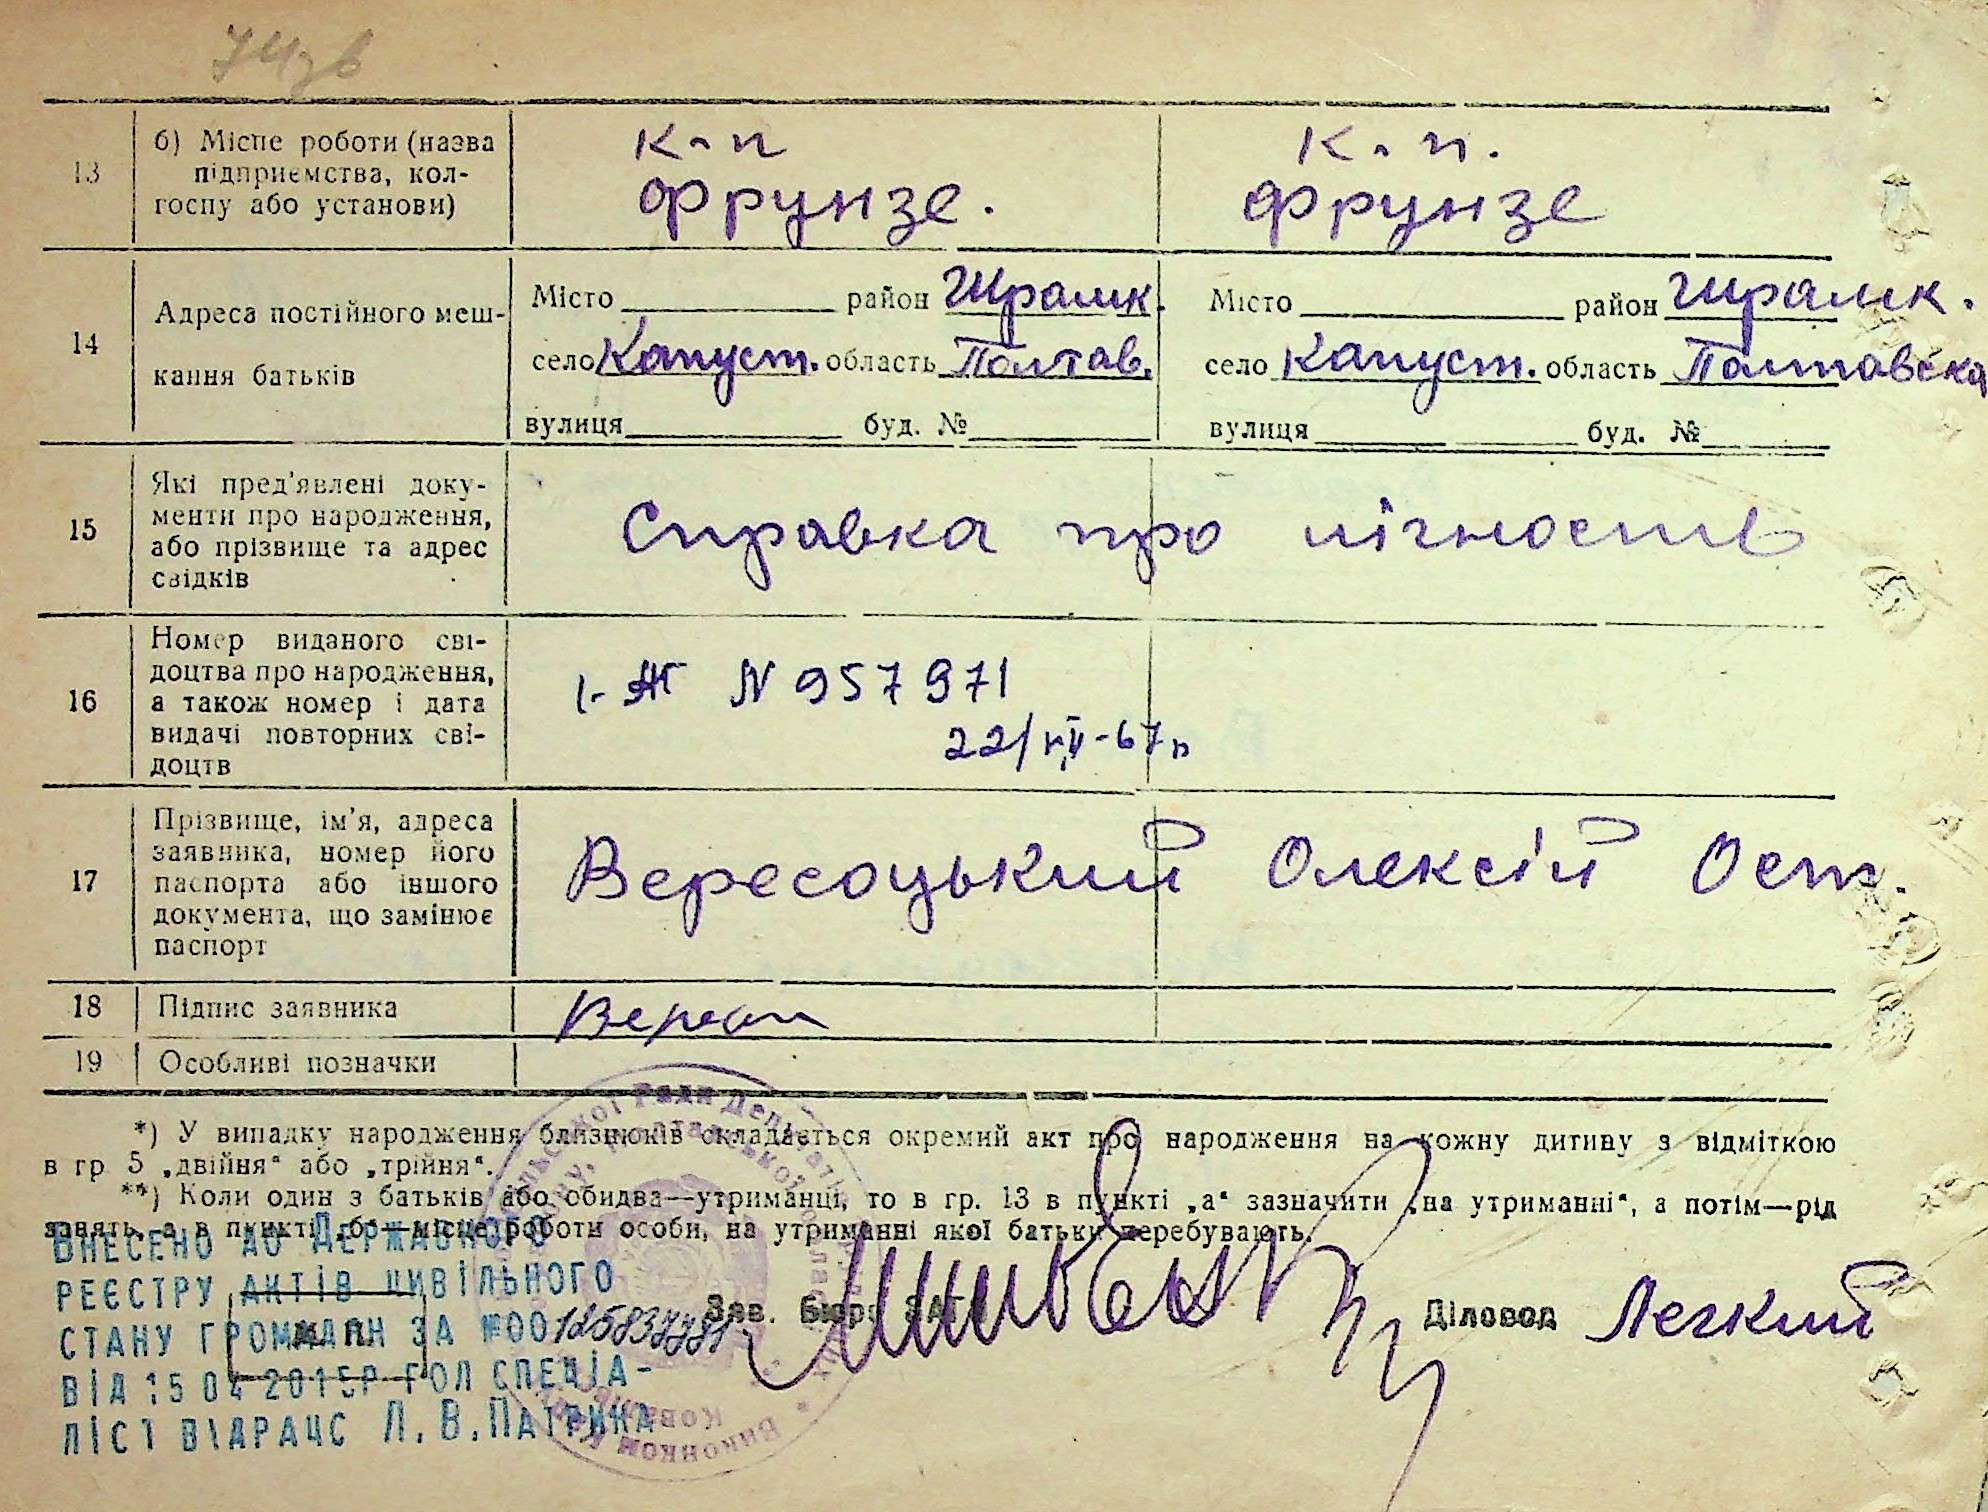 13
б) Місце роботи (назва
підприємства, кол-
госпу або установи)
к-п
Фрунзе.
к. п.
Фрунзе
14
Адреса постійного меш-
кання батьків
Місто район Шрамк.
село Капуст. область Полтав.
вулиця буд. №
Місто район Шрамк.
село Капуст. область Полтавська
вулиця буд. №
15
Які пред'явлені доку-
менти про народження,
або прізвище та адрес
свідків
Справка про лічность
16
Номер виданого сві-
доцтва про народження,
а також номер і дата
видачі повторних сві-
доцтв
І-ЖГ N 957971
22/ -67р
17
Прізвище, ім'я, адреса
заявника, номер його
паспорта або іншого
документа, що замінює
паспорт
Вересоцький Олексій Ост.
18
Підпис заявника
19
Особливі позначки
*) У випадку народження близнюків складається окремий акт про народження на кожну дитину з відміткою
в гр 5 „двійня“ або „трійня“.
**) Коли один з батьків або обидва—утриманці, то в гр. 13 в пункті „а“ зазначити „на утриманні“, а потім—рід
занять, а в пункті „б“—місце роботи особи, на утриманні якої батьки перебувають.
Зав. бюро ЗАГС
Діловод Легкий
М. П.
ВНЕСЕНО ДО ДЕРЖАВНОГО
РЕЄСТРУ АКТІВ ЦИВІЛЬНОГО
СТАНУ ГРОМАДЯН ЗА №00125837781
ВІД 15 04 2015Р ГОЛ СПЕЦІА-
ЛІСТ ВІДРАЦС Л. В. ПАТРИНА